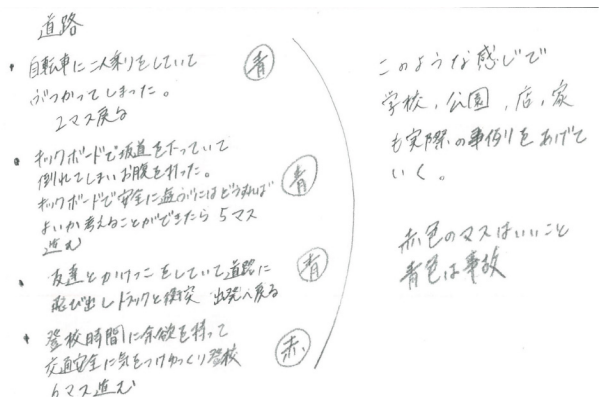 道路
・自転車に二人乗りをしていて
ぶつかってしまった。
2マス戻る
青
・キックボードで坂道を下っていて
倒れてしまいお腹を打った。
キックボードで安全に遊ぶにはどうすれば
よいか考えることができたら 5マス
進む
青
・友達とかけっこをしていて道路に
飛び出しトラックと衝突 出発へ戻る
青
・登校時間に余裕を持って
交通安全に気をつけゆっくり登校
6マス進む
赤
このような感じで
学校、公園、店、家
も実際の事例をあげて
いく。
赤色のマスはいいこと
青色は事故